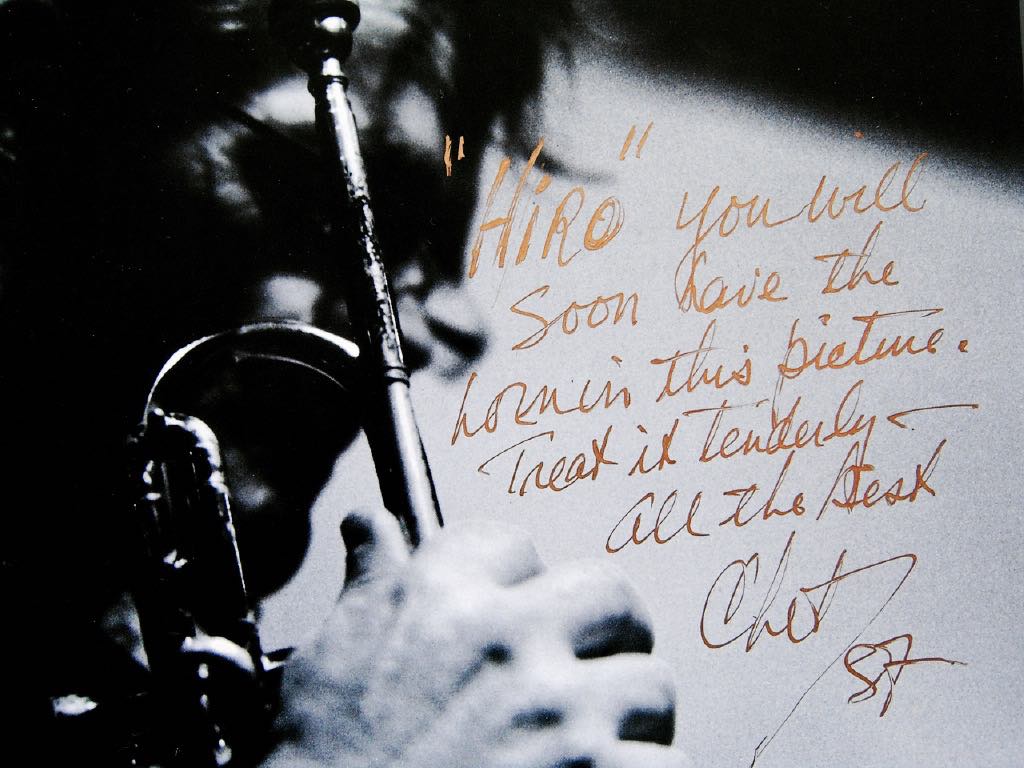 "HiRO" you will
soon have the
horn in this picture.
Treat it tenderly -
all the best
Chet
87